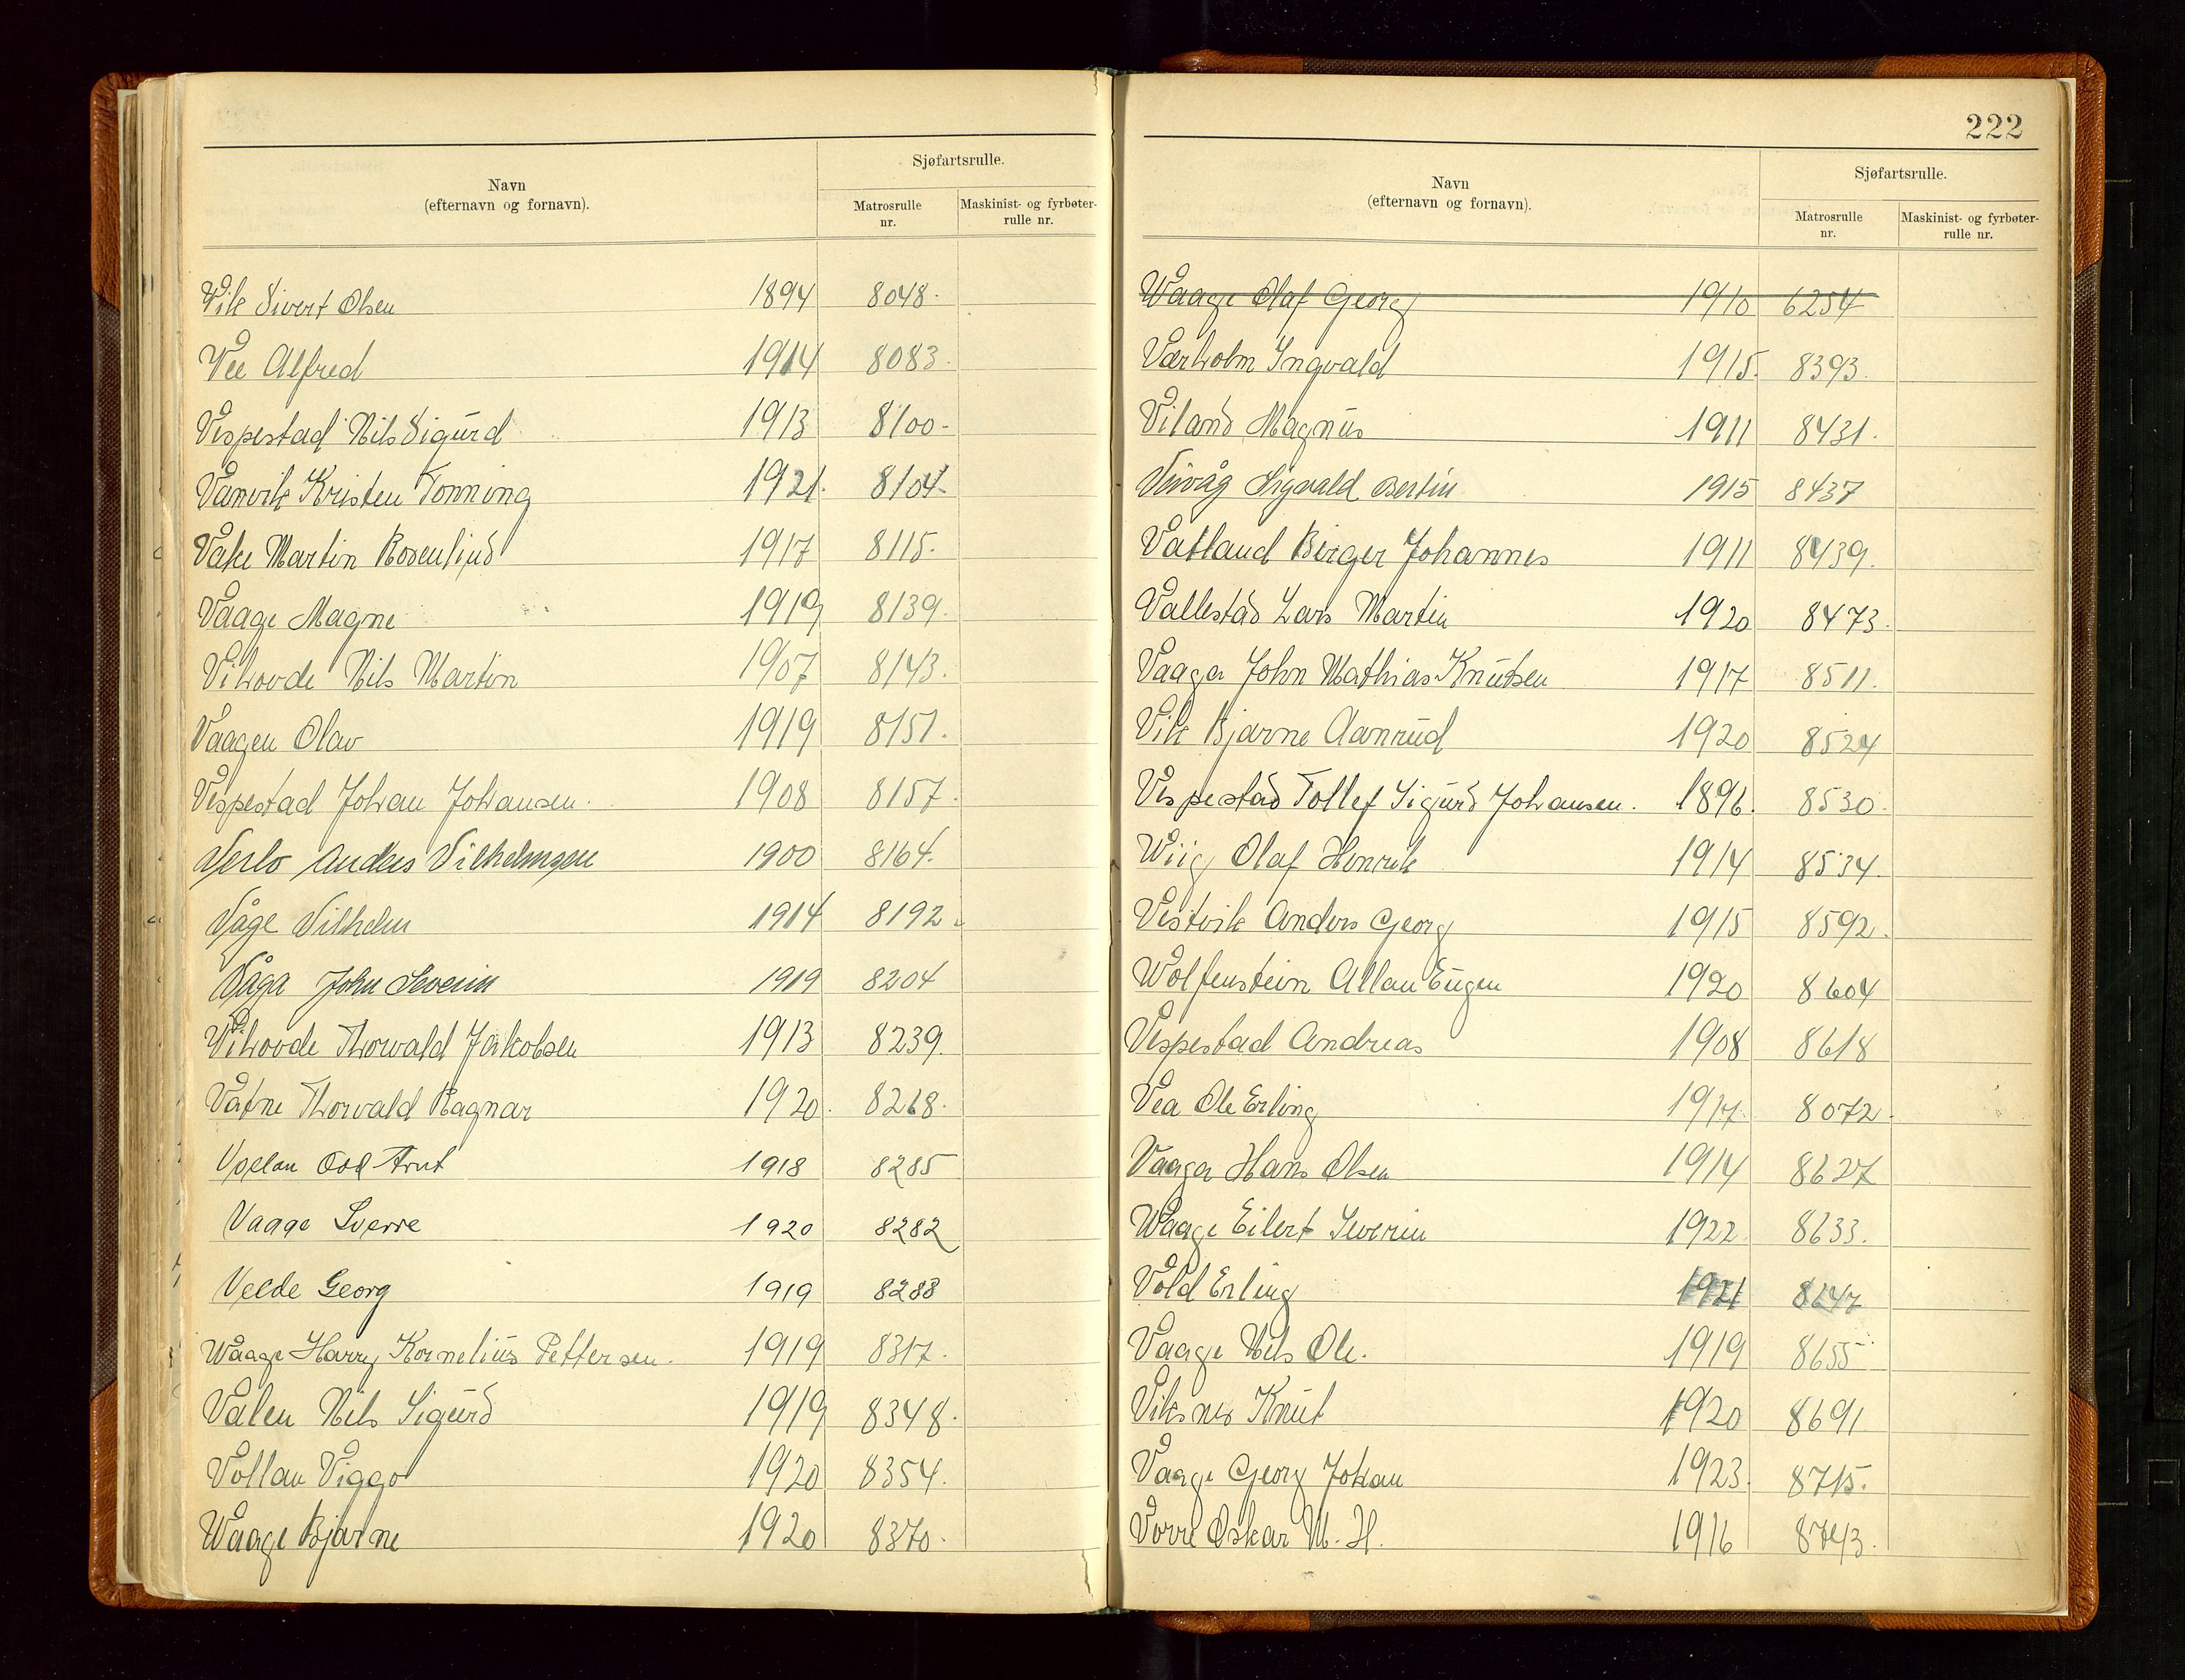 Navn
(efternavn og fornavn).
Sjøfartsrulle.
Matrosrulle nr.
Maskinist- og fyrbøter-rulle nr.
Vik Sivert Olsen 1894 8048.
Vee Alfred 1914 8083.
Vespestad Nils Sigurd 1913 8100-
Vamvik Kristen Tonning 1921. 8104.
Vake Martin Rosenlind 1917 8115.
Vaage Magne 1919 8139.
Vihovde Nils Martin 1907 8143.
Vaagen Olav 1919 8151.
Vespestad Johan Johansen. 1908 8157.
Anders Vilhelmsen 1900 8164.
Våge Vilhelm 1914 8192.
Våga John Severin 1919 8204
Vihovde Thorvald Jakobsen 1913 8239.
Vatne Thorvald Ragnar 1920. 8268.
Odd Arnt 1918 8285
Vaage Sverre 1920 8282
Velde Georg 1919 8288
Waage Harry Kornelius Pettersen. 1919 8317.
Valen Nils Sigurd 1919 8348.
Vollan Viggo 1920 8354.
Waage Bjarne 1920 8370.
222
Navn
(efternavn og fornavn).
Sjøfartsrulle.
Matrosrulle nr.
Maskinist- og fyrbøter-rulle nr.
Waage Olaf Georg 1910 6254
Værholm Ingvald 1915. 8393.
Viland Magnus 1911 8431.
Sigvald Bertin 1915 8437
Vatland Birger Johannes 1911 8439.
Vallestad Lars Martin 1920 8473.
Vaaga John Mathias Knutsen 1917 8511.
Vik Bjarne Aanrud 1920 8524
Vespestad Tollef Sigurd Johansen. 1896. 8530.
Wiig Olaf Henrik 1914 8534.
Vestvik Anders Georg 1915 8592.
Wolfenstein Allan Eugen 1920 8604
Vespestad Andreas 1908 8618
Vea Ole Erling 1917. 8072.
Vaaga Hans Olsen 1914 8627
Waage Eilert Severin 1922. 8633.
Vold Erling 1921 8647
Vaage Nils Ole. 1919 8655
Viksnes Knut 1920 8691
Vaage Georg Johan 1923. 8715.
Vorre Oskar M. H. 1916 8743.